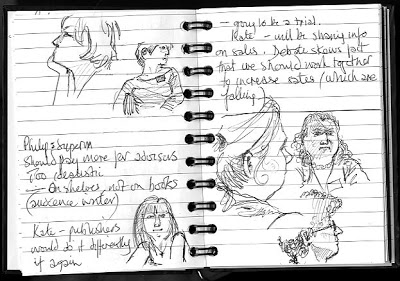 Philip
should pay more for
Too idealistic
– On shelves, not on books
(audience writer)
Kate – publishers
would do it differently
if again
– going to be a trial.
Kate – will be sharing info
on sales. Debate shows just
that we should work together
to increase sales (which are
falling)